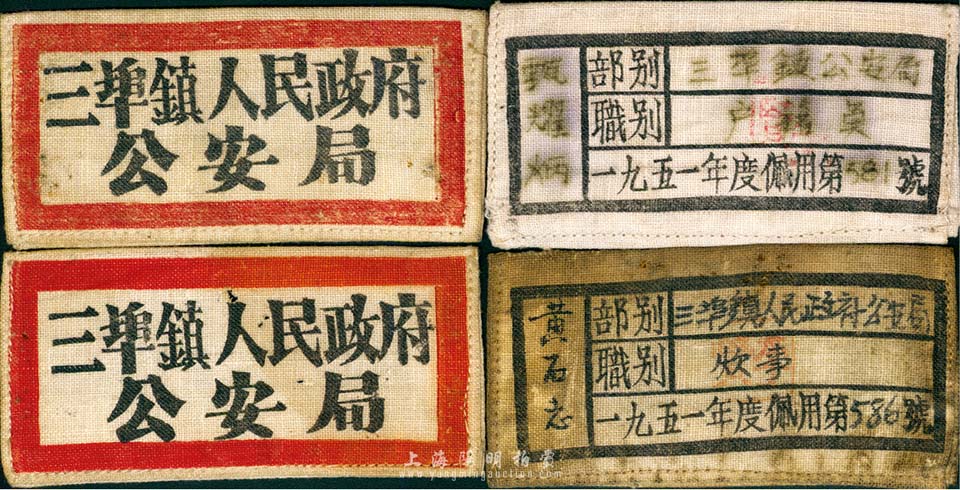 三埠鎮人民政府
公安局
部别 三埠鎮公安局
職别 户籍員
一九五一年度佩用第581號
三埠鎮人民政府
公安局
黄 志
部别 三埠鎮人民政府公安局
職别 炊事
一九五一年度佩用第586號
上海陽明拍賣
www.yangmingauction.com